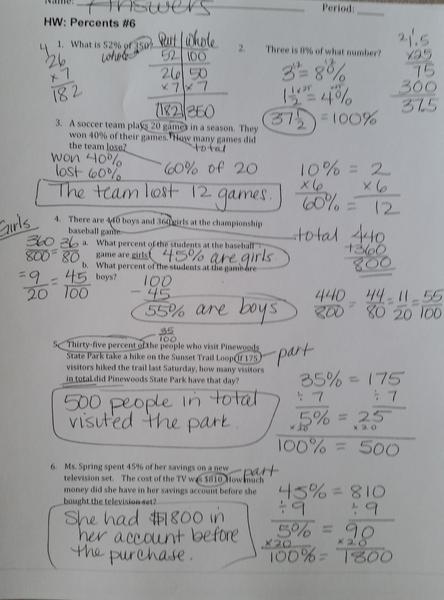 Name: Answers Period:
HW: Percents #6
1. What is 52% of 350?
whole
Part | Whole
52 | 100
26 | 50
×7 | ×7
182 | 350
4
26
×7
182
2. Three is 8% of what number?
3 = 8%
1½ = 4%
37½ = 100%
×25
75
300
37.5
3. A soccer team plays 20 games in a season. They
won 40% of their games. How many games did
the team lose?
total
won 40%
lost 60%
60% of 20
10% = 2
×6 ×6
60% = 12
The team lost 12 games.
4. There are 440 boys and 360 girls at the championship
baseball game.
total 440
+360
800
Girls
360/800 = 36/80
= 9/20 = 45/100
a. What percent of the students at the baseball
game are girls?
45% are girls
b. What percent of the students at the game are
boys?
100
- 45
55% are boys
440/800 = 44/80 = 11/20 = 55/100
35/100
5. Thirty-five percent of the people who visit Pinewoods
State Park take a hike on the Sunset Trail Loop. If 175
visitors hiked the trail last Saturday, how many visitors
in total did Pinewoods State Park have that day?
part
35% = 175
÷7 ÷7
5% = 25
×20 ×20
100% = 500
500 people in total
visited the park.
6. Ms. Spring spent 45% of her savings on a new
television set. The cost of the TV was $810. How much
money did she have in her savings account before she
bought the television set?
part
45% = 810
÷9 ÷9
5% = 90
×20 ×20
100% = 1800
She had $1800 in
her account before
the purchase.